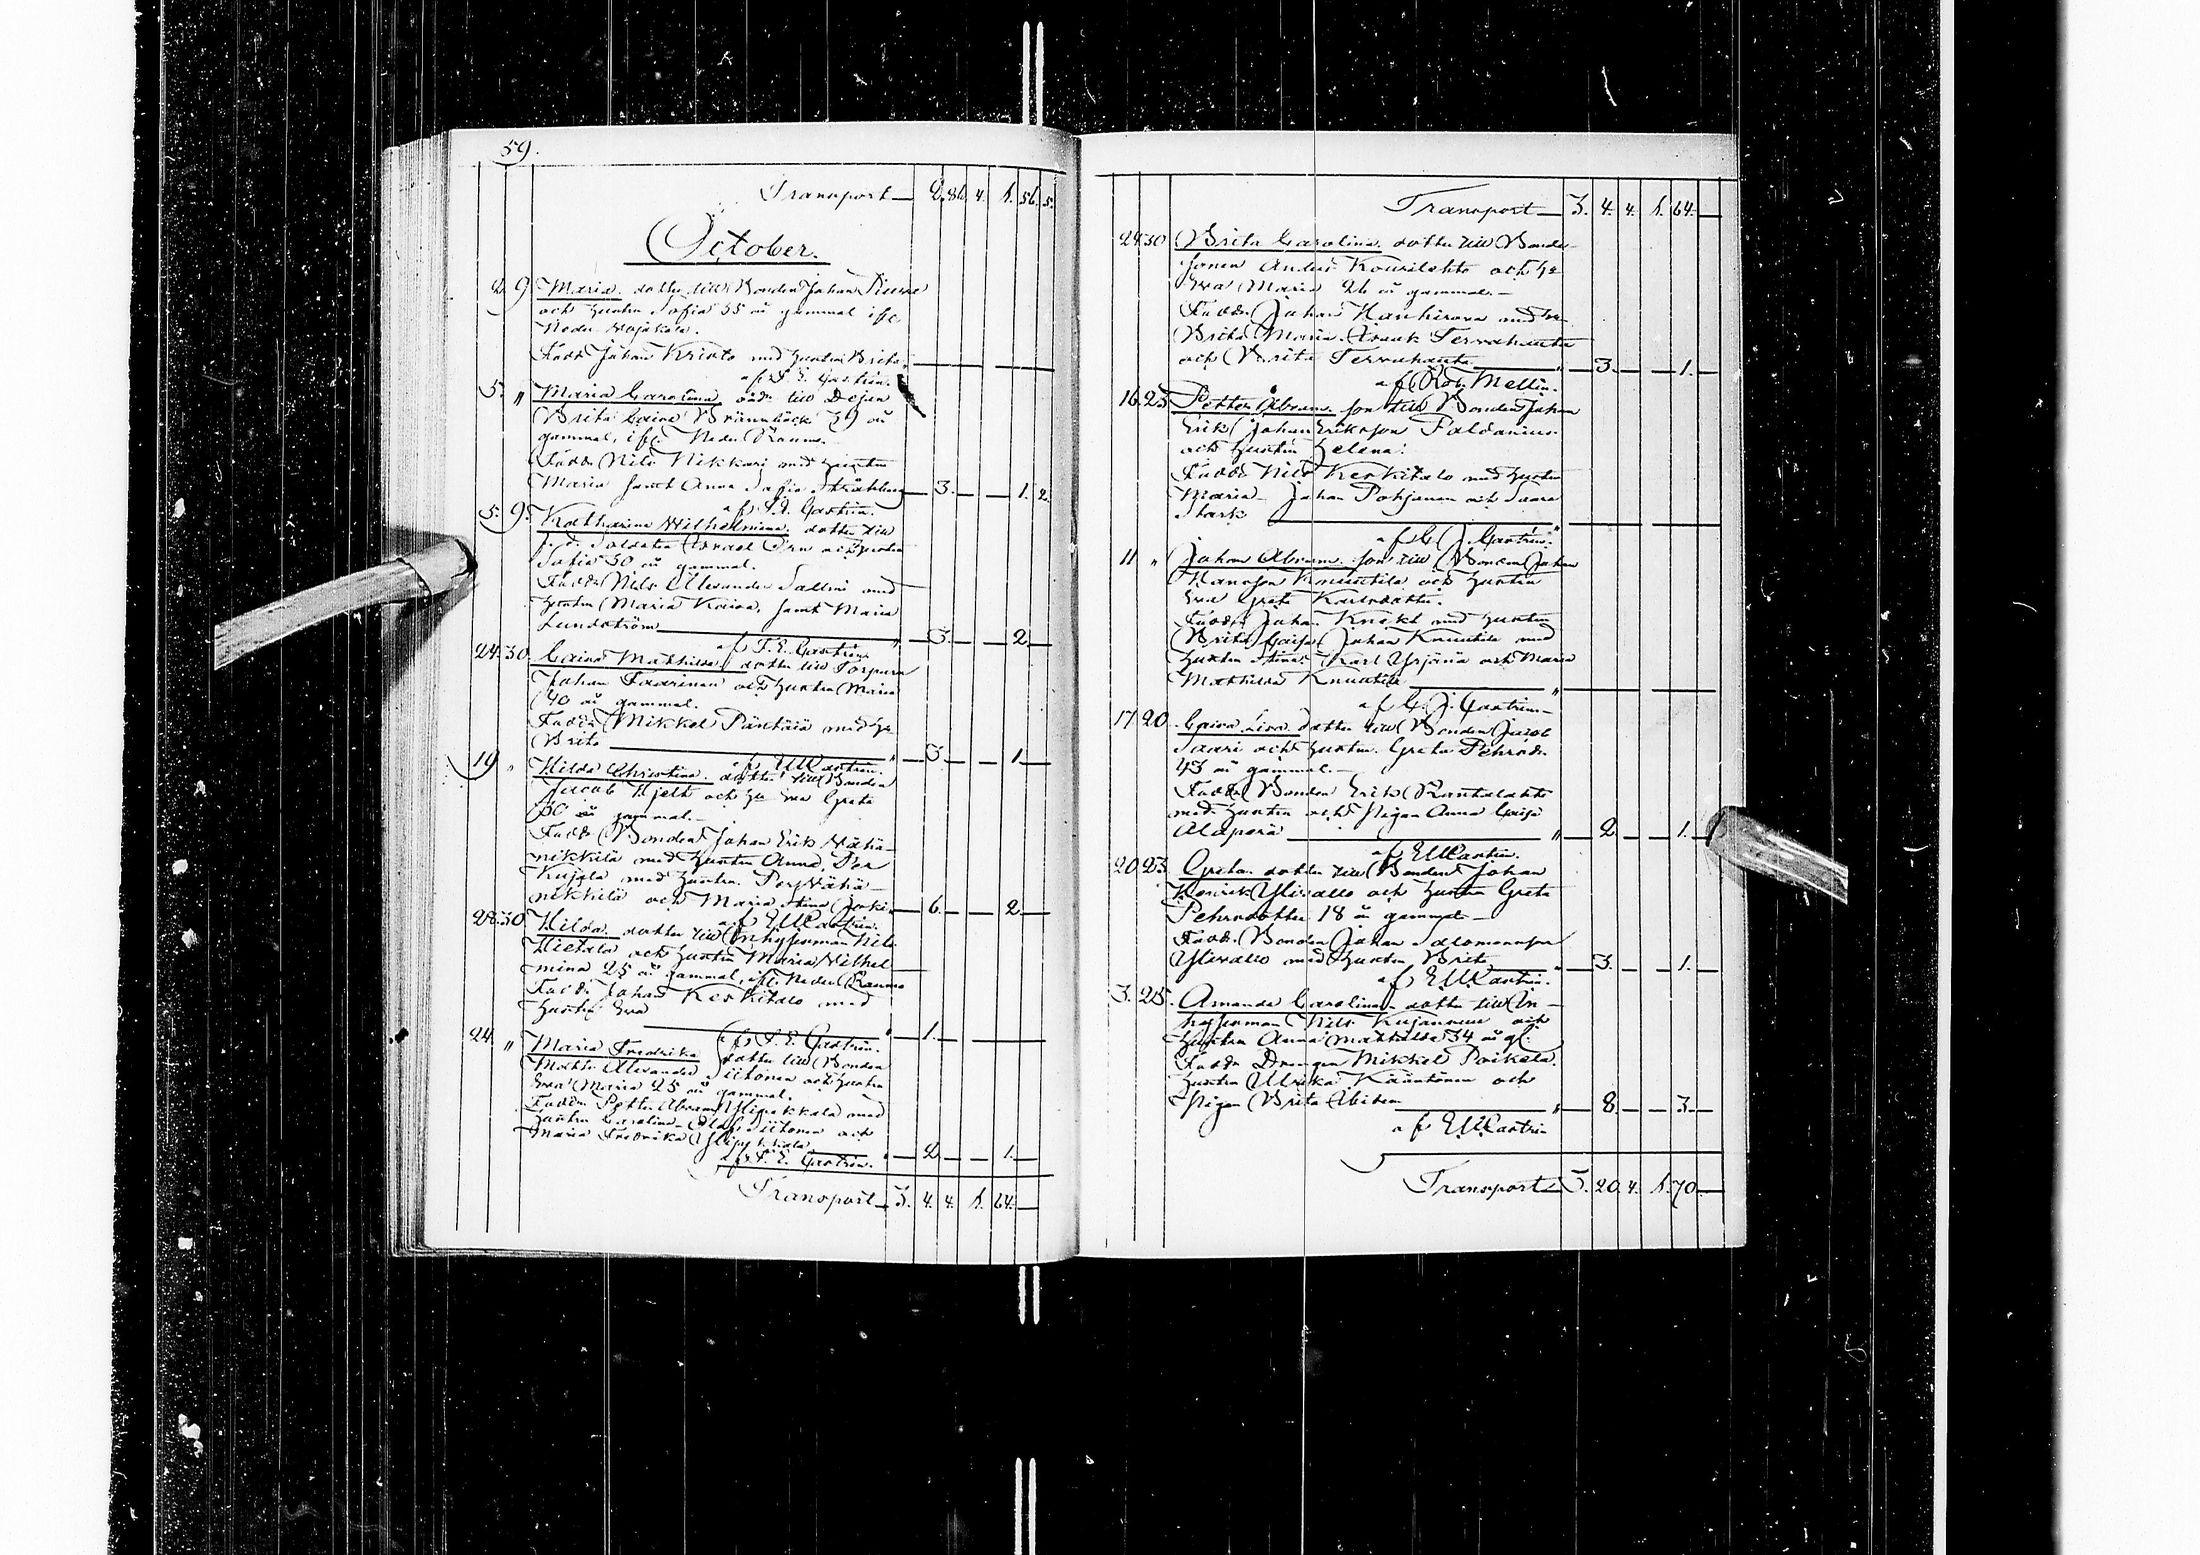 59.
Transport — 2. 86. 4. 1. 56. 5.
October.
2. 9 Maria. dotter till Bonden Johan
och hustru Sofia 35 år gammal ifr.
Neder Wojakala.
Fadd. Johan Kristo med hustru Brita
af F. E. Castrén.
5. " Maria Carolina oädr till Dejan
Brita Caisa Brännbäck 29 år
gammal, ifr. Neder Raumo.
Fadd. Nils Nikkari med hustru
Maria samt Anna Sofia Stråhlberg — 3. — — 1. 2.
af F. E. Castrén.
5. 9. Katharina Wilhelmina. dotter till
f. d. Soldaten Israel Örn och hustru
Sofia 30 år gammal.
Fadd. Nils Alexander Sallini med
hustru Maria Kaisa, samt Maria
Lundström — " — 3. — — 2. —
af F. E. Castrén.
24. 30. Caisa Mathilda dotter till Torparen
Johan Saarinen och hustru Maria
40 år gammal.
Fadd. Mikkel Päntäiä med h.
Brita — " — 3. — — 1. —
af EMCastrén.
19 " Hilda Christina. dotter till Bonden
Jacob Hjelt och hu Eva Greta
30 år gammal. —
Fadd. Bonden Johan Erik Wähä-
nikkilä med hustru Anna, Per
Kujala med hustru. Per Wähä-
nikkilä och Maria Stina Joki — 6. — — 2 —
af EMCastrén.
28. 30 Hilda. dotter till Inhysesman Nils
Hietala och hustru Maria Wilhel
mina 25 år gammal, ifr. Neder Raumo
Fadd. Johan Keskitalo med
hustru Eva — " — 1. —
af F. E. Castrén.
24. " Maria Fredrika dotter till Bonden
Matts Alexander Siitonen och hustru
Eva Maria 25 år gammal.
Fadd. Petter Abram Ylipekkala med
hustru Carolina. Olof Siitonen och
Maria Fredrika Ylipekkala — " — 2. — — 1. —
af F. E. Castrén.
Transport — 3. 4. 4. 1. 64. —
Transport — 3. 4. 4. 1. 64. —
24. 30 Brita Carolina. dotter till Bonde
sonen Anders Kourilehto och h.
Eva Maria 26 år gammal. —
Fadd. Johan Kauhirova med hu
Brita Maria. Isaak Tervahauta
och Brita Tervahauta — " — 3. — — 1. —
af Rob. Mellin.
16. 23 Petter Abram. son till Bonden Johan
Erik Johan Eriksson Paldanius
och hustru Helena.
Fadd. Nils Keskitalo med hustru
Maria — Johan Pohjanen och Saara
Stark — "
af C. J. Castrén.
11 " Johan Abram. son till Bonden Johan
Hansson Knuutila och hustru
Eva Greta Karlsdotter.
Fadd. Johan Knekt med hustru
Brita Caisa Johan Knuutila med
hustru Stina. Karl Yrjänä och Maria
Mathilda Knuutila — "
af C. J. Castrén —
17 20. Caisa Lisa dotter till Bonden Jacob
Saari och hustru. Greta Pehrsdr.
43 år gammal. —
Fadd. Bonden Erik Rantalahti
med hustru och Pigan Anna Caisa
Alaperä — " — 2. — — 1. —
af EMCastrén.
20. 23. Greta. dotter till Bonden Johan
Henrik Ylivallo och hustru Greta
Pehrsdotter 18 år gammal —
Fadd. Bonden Johan Salomonsson
Ylivallo med hustru Brita — " — 3. — — 1. —
af EMCastrén.
3. 25. Amanda Carolina. dotter till In-
hysesman Nils Kujanen och
hustru Anna Mathilda 34 år gl.
Fadd. Drengen Mikkel Poikela.
hustru Ulrika Kääntönen och
Pigan Brita — " — 8. — — 3. —
af EMCastrén
Transport — 3. 20. 4. 1. 70. —